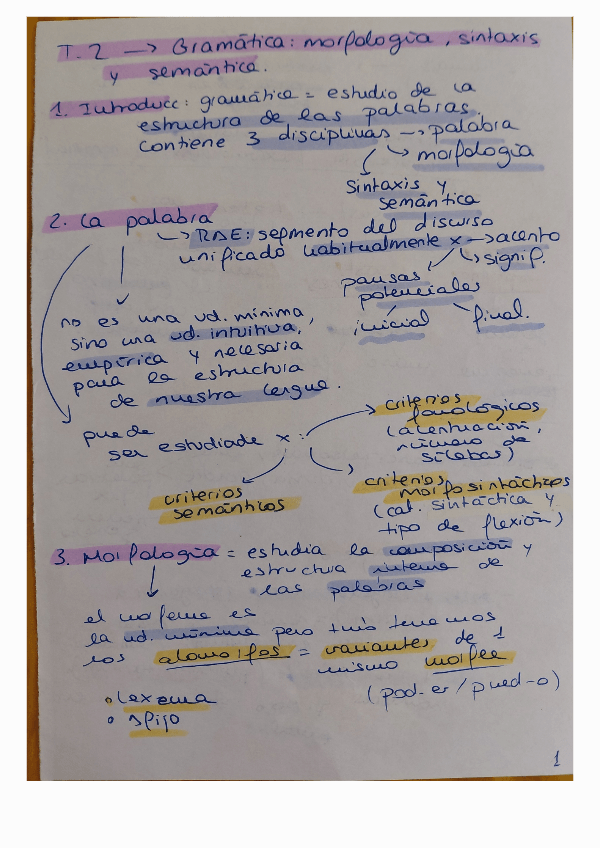 T. 2 → Gramática: morfología, sintaxis
y semántica.
1. Introducc: gramática = estudio de la
estructura de las palabras.
Contiene 3 disciplinas → palabra
morfología
sintaxis y
semántica
2. La palabra
RAE: segmento del discurso
unificado habitualmente x → acento
signif.
pausas
potenciales
inicial
final.
no es una ud. mínima,
sino una ud. intuitiva,
empírica y necesaria
para la estructura
de nuestra lengua.
puede
ser estudiada x:
criterios
fonológicos
(acentuación,
número de
sílabas)
criterios
morfosintácticos
(cat. sintáctica y
tipo de flexión)
criterios
semánticos
3. Morfología = estudia la composición y
estructura interna de
las palabras
el morfema es
la ud. mínima pero tmb tenemos
los alomorfos = variantes de 1
mismo
(pod-er/pued-o)
• lexema
• afijo
1